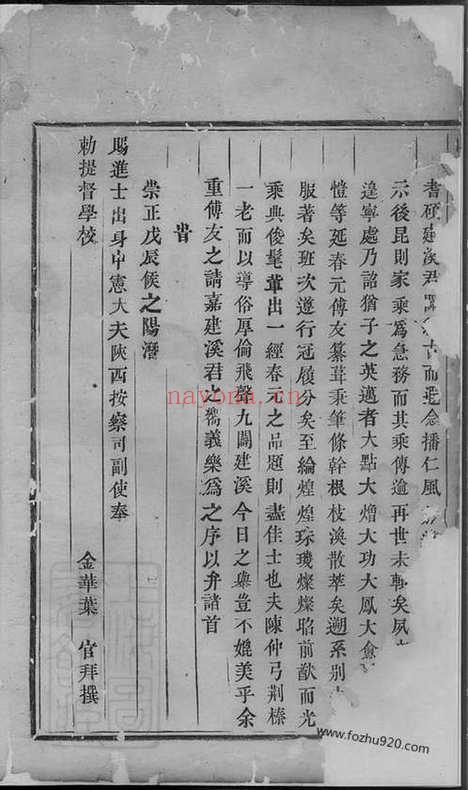 耆硕建溪君
而追念播仁风
示后昆则家乘為急务而其乘傳逾再世未
遑寧處乃詔猶子之英邁者大點大熷大功大鳳大
愷等延春元傅友纂葺秉筆條幹根枝渙散萃矣遡系别
服著矣班次遵行冠履分矣至綸煌煌珠璣燦燦晗前猷而光
乘典俊髦軰出一經春元之品題則盡佳士也夫陳仲弓荆榛
一老而以導俗厚倫飛聲九闢建溪今日之舉豈不媲美乎余
重傅友之請嘉建溪君之嚮義樂為之序以弁諸首
旹
崇正戊辰候之陽潛
賜進士出身中憲大夫陝西按察司副使奉
勅提督學校
金華葉 官拜撰
nayona.cn
www.fozhu920.com